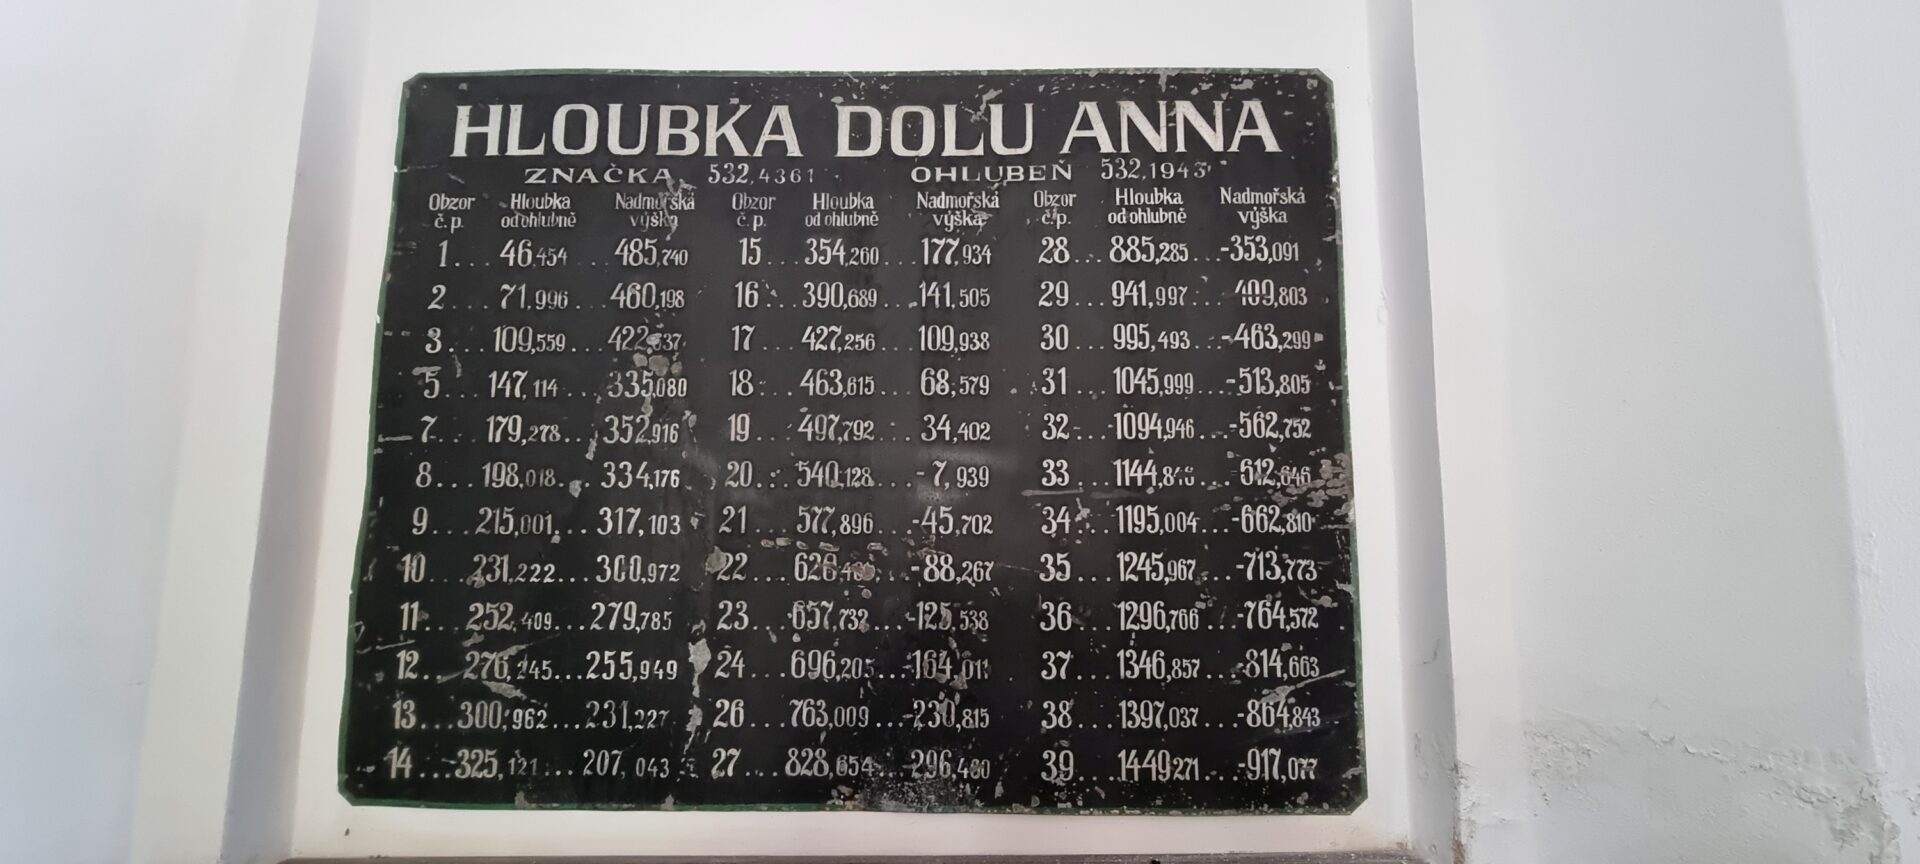 HLOUBKA DOLU ANNA
ZNAČKA 532,4361 OHLUBEŇ 532,1943
Obzor č.p. Hloubka od ohlubně Nadmořská výška Obzor č.p. Hloubka od ohlubně Nadmořská výška Obzor č.p. Hloubka od ohlubně Nadmořská výška
1... 46,454 ... 485,740 15 ... 354,260 ... 177,934 28 ... 885,285 ... -353,091
2 ... 71,996 ... 460,198 16 ... 390,689 ... 141,505 29 ... 941,997 ... -409,803
3 ... 109,559 ... 17 ... 427,256 ... 109,938 30 ... 995,493 ... -463,299
5 ... 147,114 ... 335,080 18 ... 463,615 ... 68,579 31 ... 1045,999 ... -513,805
7 ... 179,278 ... 352,916 19 ... 497,792 ... 34,402 32 ... 1094,946 ... -562,752
8 ... 198,018 ... 334,176 20 ... 540,128 ... -7,939 33 ... -612,646
9 ... 215,001 ... 317,103 21 ... 577,896 ... -45,702 34 ... 1195,004 ... -662,810
10 ... 231,222 ... 300,972 22 ... -88,267 35 ... 1245,967 ... -713,773
11 ... 252,409 ... 279,785 23 ... 657,732 ... -125,538 36 ... 1296,766 ... -764,572
12 ... 276,245 ... 255,949 24 ... 696,205 ... -164,011 37 ... 1346,857 ... -814,663
13 ... 300,962 ... 231,227 26 ... 763,009 ... -230,815 38 ... 1397,037 ... -864,843
14 ... 325,121 ... 207,043 27 ... 828,654 ... -296,460 39 ... 1449,271 ... -917,077